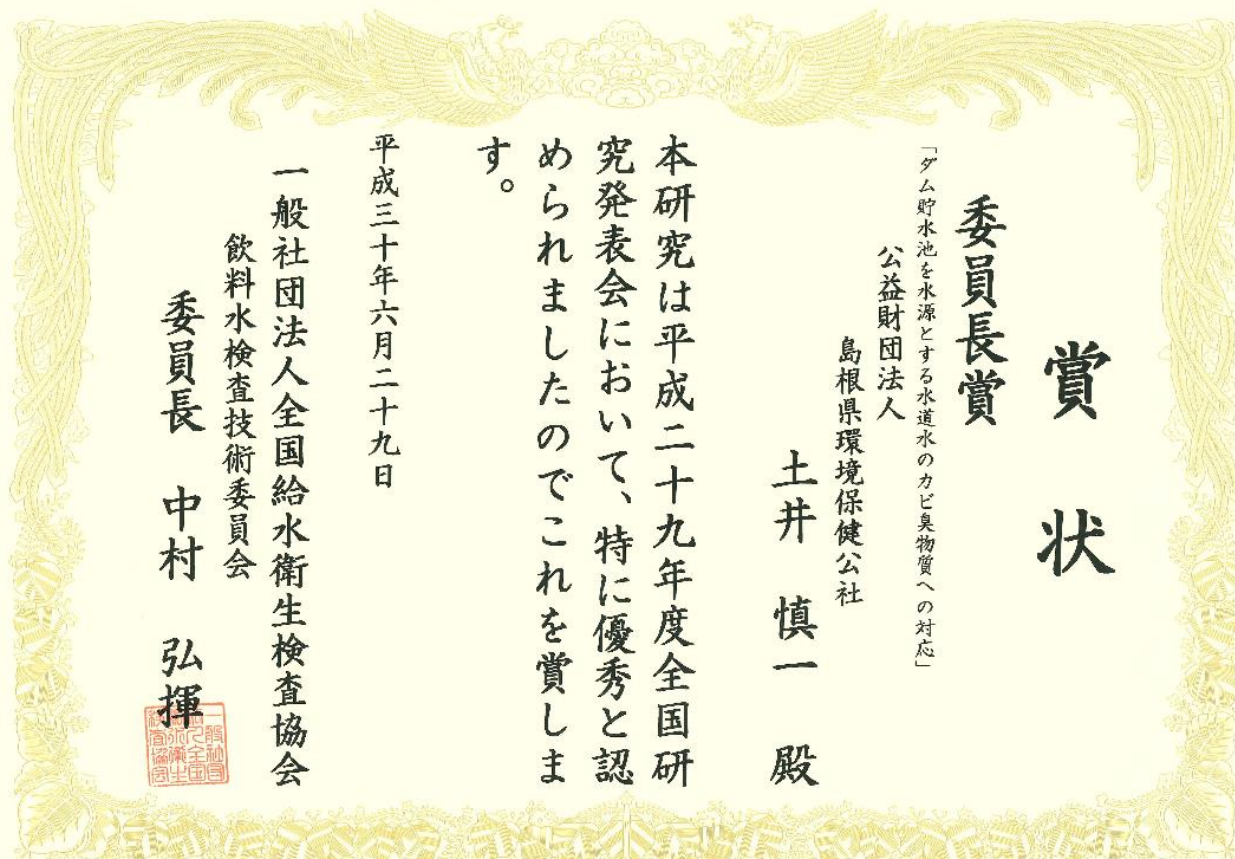 賞状
委員長賞
「ダム貯水池を水源とする水道水のカビ臭物質への対応」
公益財団法人
島根県環境保健公社
土井 慎一 殿
本研究は平成二十九年度全国研
究発表会において、特に優秀と認
められましたのでこれを賞しま
す。
平成三十年六月二十九日
一般社団法人全国給水衛生検査協会
飲料水検査技術委員会
委員長 中村 弘揮